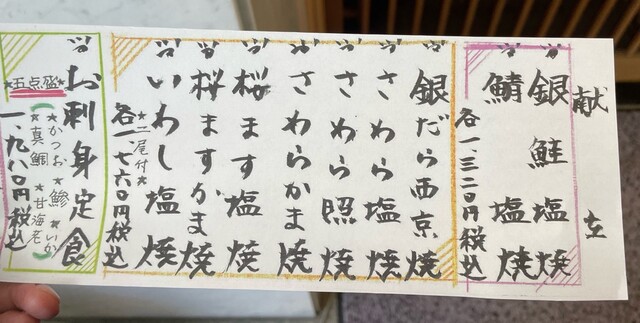 献立
銀鮭塩焼
鯖塩焼
各一、三二〇円税込
銀だら西京焼
さわら塩焼
さわら照焼
さわらかま焼
桜ます塩焼
桜ますかま焼
いわし塩焼
★二尾付★
各一、七六〇円税込
お刺身定食
★五点盛★
★かつお★鯵★いか
★真鯛★甘海老
一、九八〇円税込